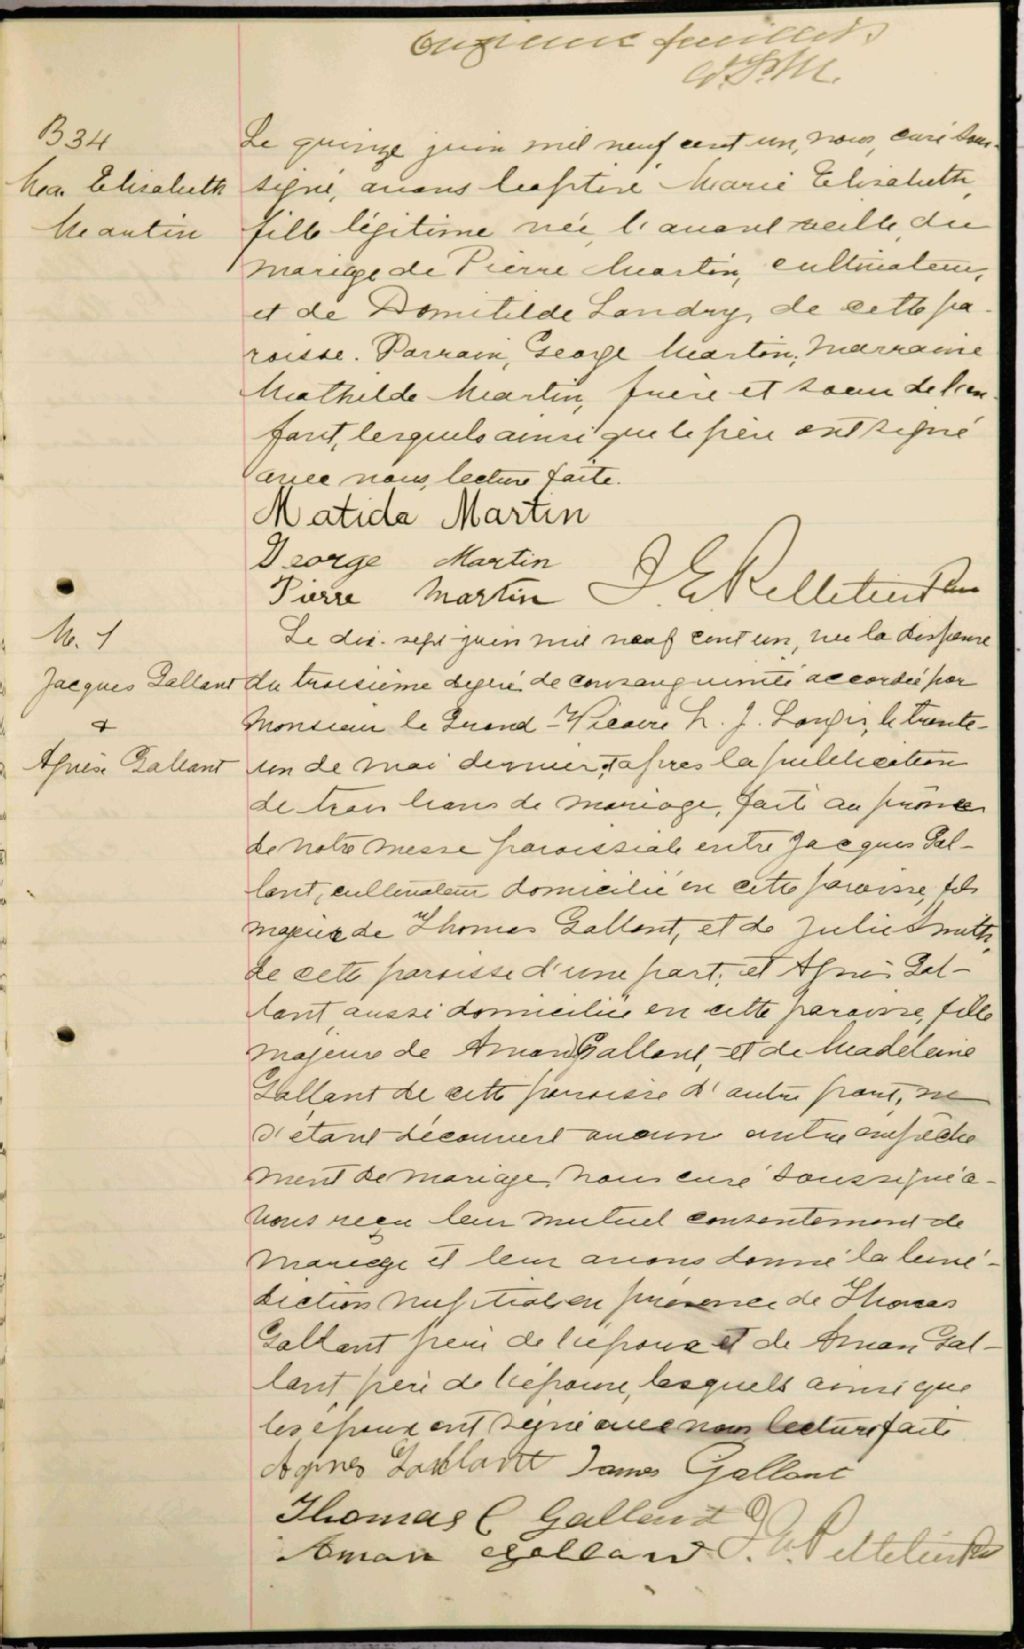 feuillet
B 34
Mar. Elisabeth
Martin
Le quinze juin mil neuf cent un, nous, curé sous-
signé, avons baptisé Marie Elisabeth,
fille légitime née l'avant veille, du
mariage de Pierre Martin, cultivateur,
et de Domitilde Landry, de cette pa-
roisse. Parrain, George Martin; marraine
Mathilde Martin, frère et soeur de l'en-
fant, lesquels ainsi que le père ont signé
avec nous, lecture faite.
Matida Martin
George Martin
Pierre Martin J. E. Pelletier Ptre
M. 1
Jacques Gallant
&
Agnès Gallant
Le dix-sept juin mil neuf cent un, vu la dispense
du troisième degré de consanguinité accordée par
Monsieur le Grand-Vicaire L. J. Langis, le trente-
un de mai dernier, et après la publication
de trois bans de mariage, faite au prône
de notre messe paroissiale entre Jacques Gal-
lant, cultivateur domicilié en cette paroisse, fils
majeur de Thomas Gallant, et de Julie Smith,
de cette paroisse d'une part; et Agnès Gal-
lant, aussi domiciliée en cette paroisse, fille
majeure de Aman Gallant, et de Madeleine
Gallant de cette paroisse d'autre part; ne
s'étant découvert aucun autre empêche
ment de mariage, nous curé soussigné a-
vons reçu leur mutuel consentement de
mariage et leur avons donné la béné-
diction nuptiale en présence de Thomas
Gallant père de l'époux et de Aman Gal-
lant père de l'épouse, lesquels ainsi que
les époux ont signé avec nous lecture faite
Agnes Gallant James Gallant
Thomas C Gallant
Aman Gallant J. E. Pelletier Ptre